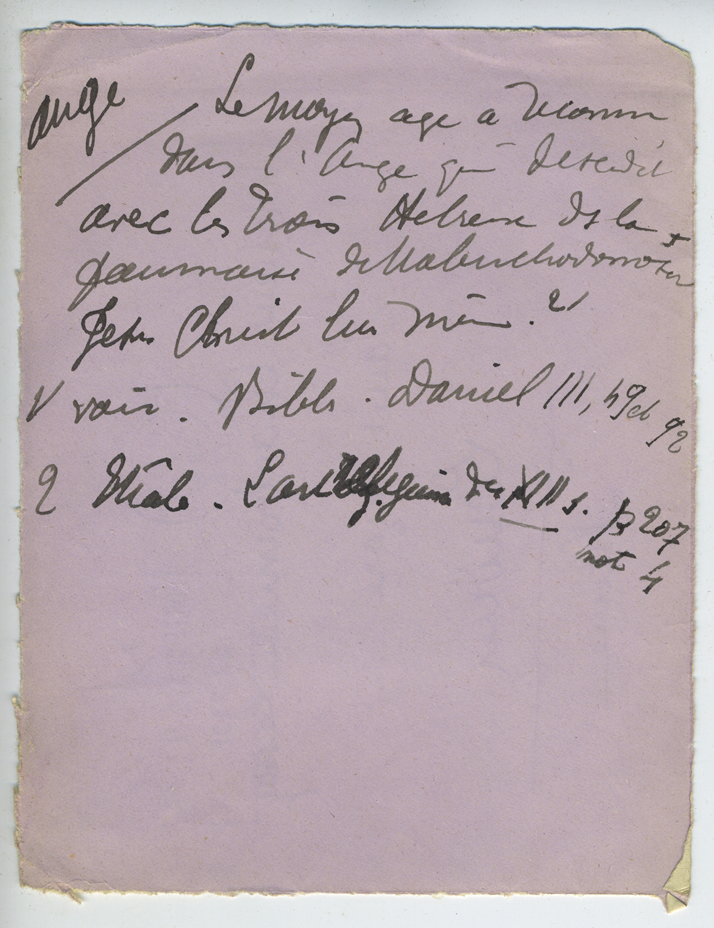 Ange
Le moyen age a reconnu
dans l'Ange qui descendit
avec les trois Hebreux ds la
fournaise de Nabuchodonosor
Jesus Christ lui même. 2/
1/ voir. Bible. Daniel III, 49 et 92
2 Mâle. L'art religieux du XIII s. p 207
not 4